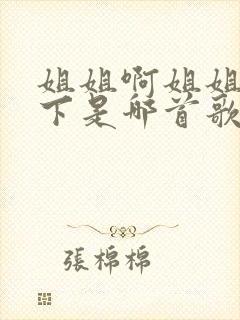 姐姐啊姐姐
下是哪首歌
張棉棉